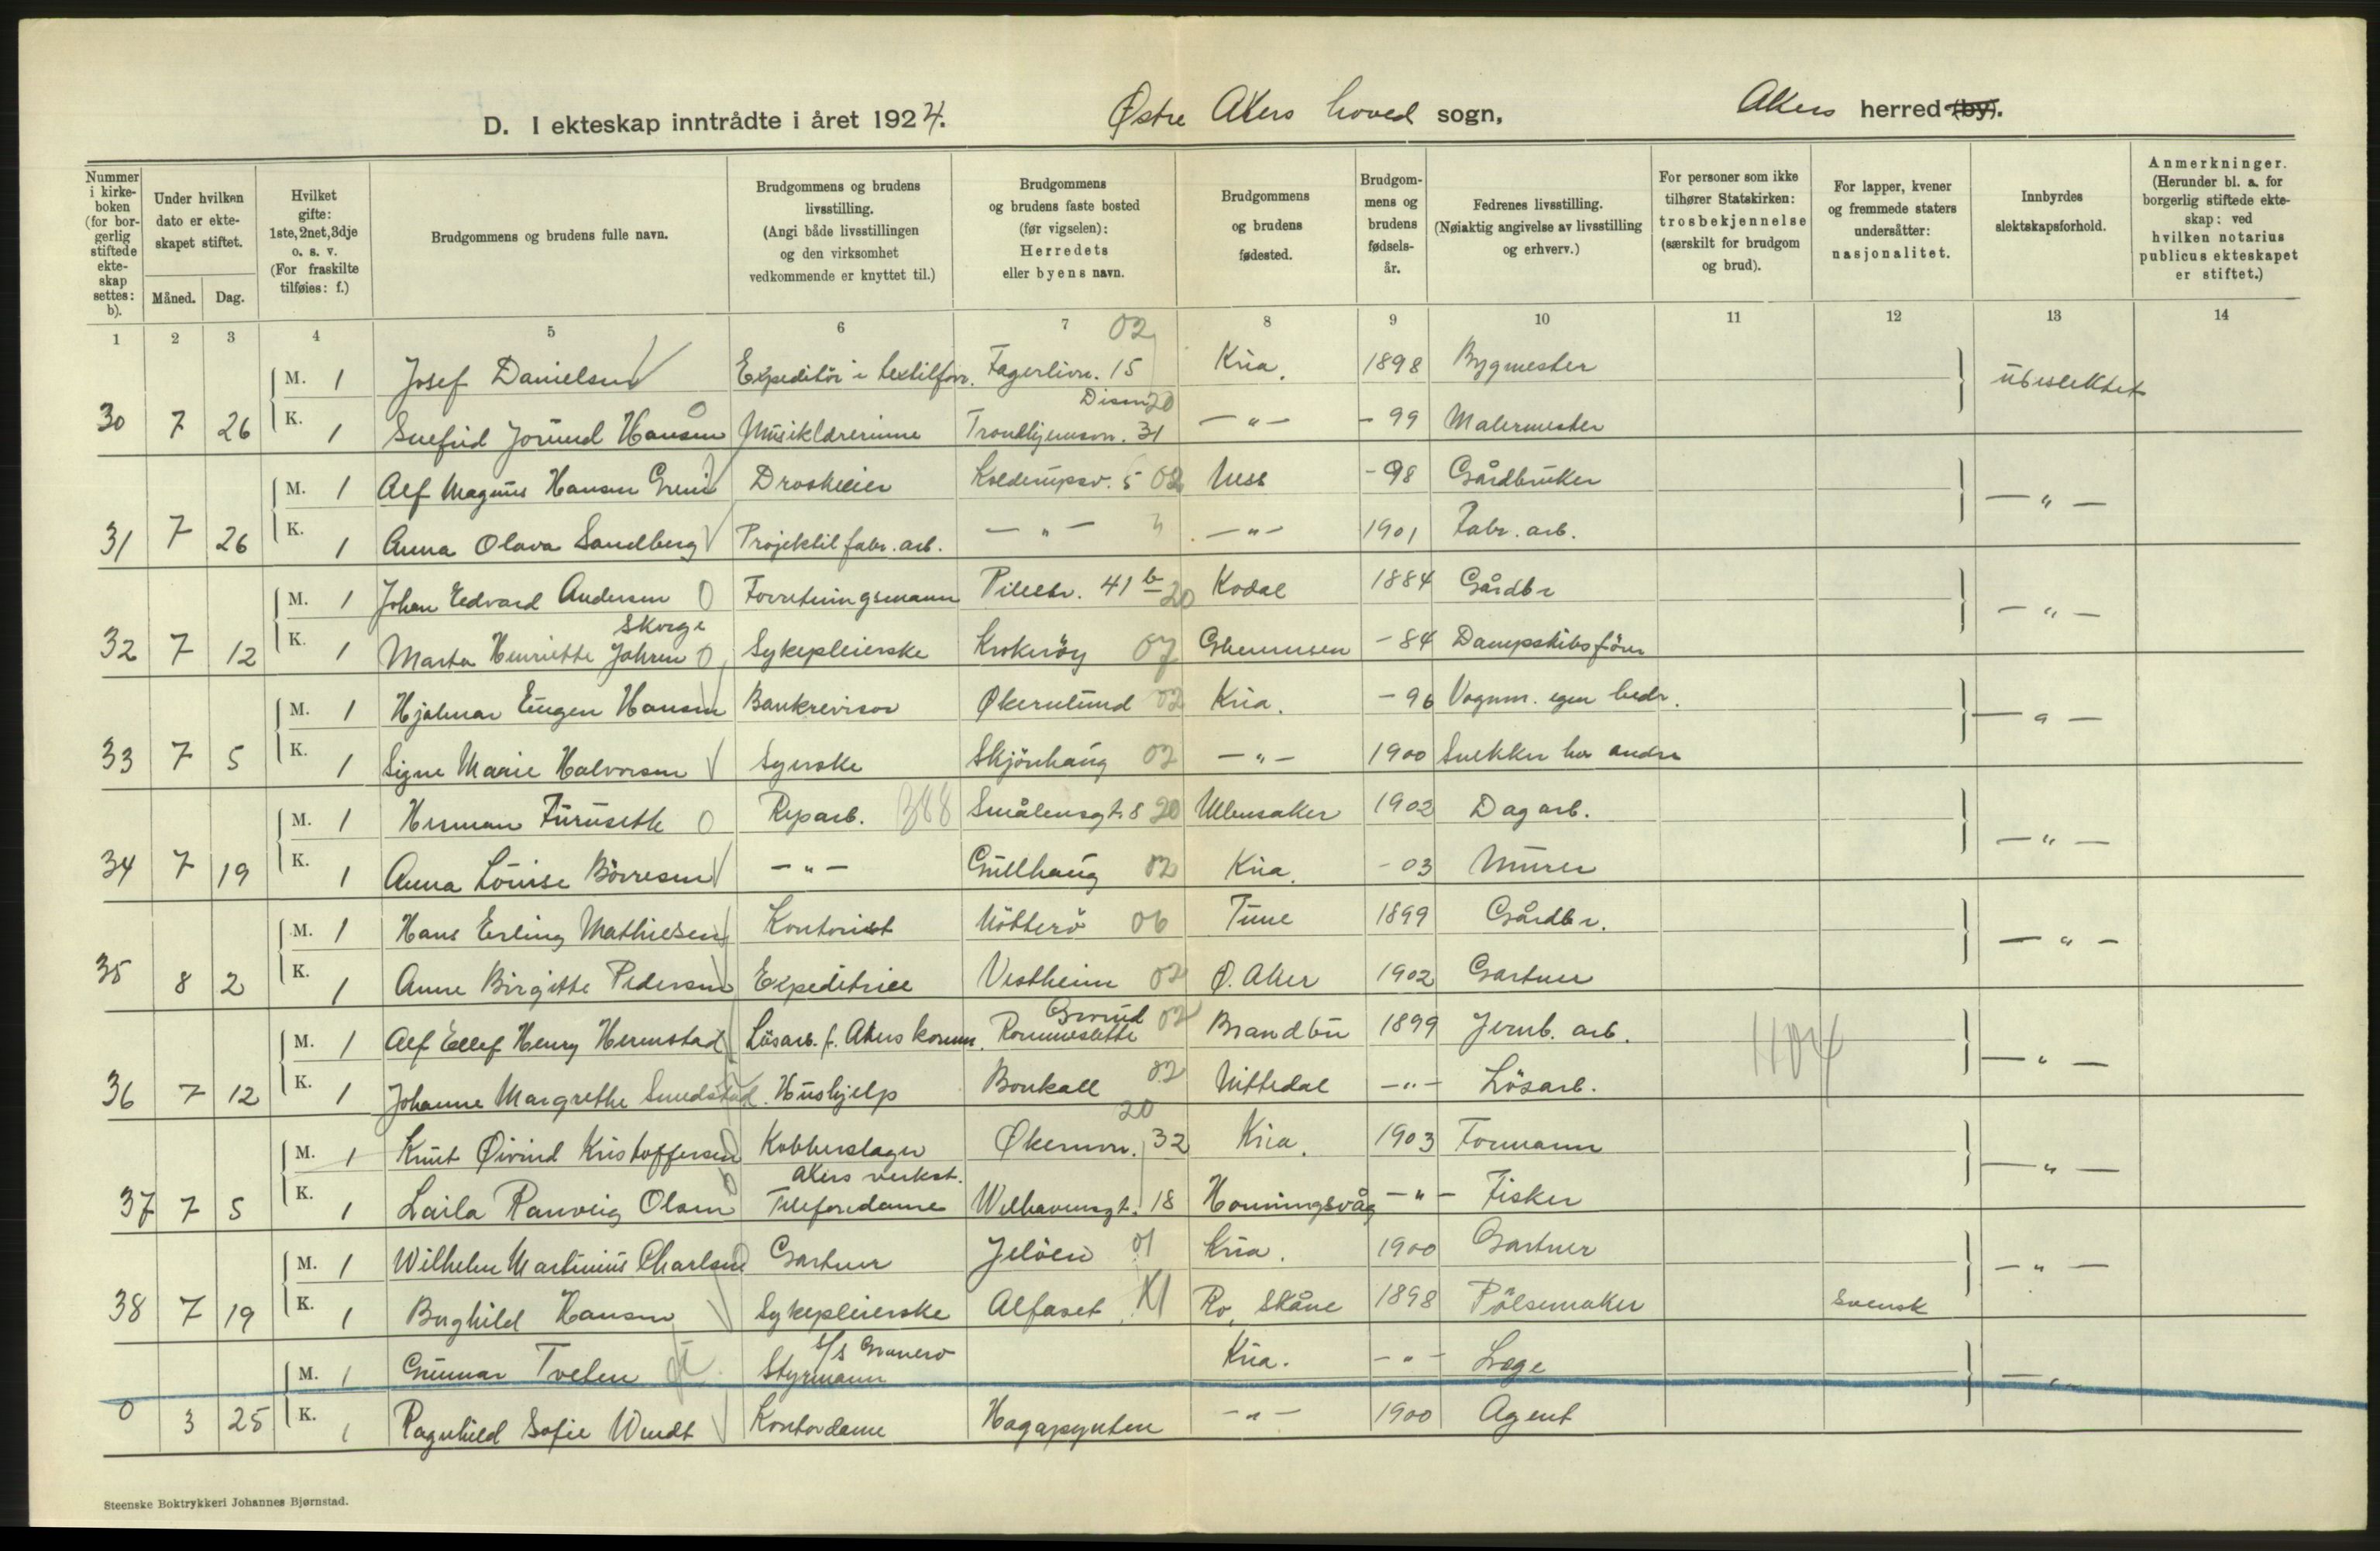 D. I ekteskap inntrådte i året 1924. Østre Akers hoved sogn, Akers herred (by).
Nummer i kirkeboken (for borgerlig stiftede ekteskap settes: b).
Under hvilken dato er ekteskapet stiftet.
Måned. Dag.
Hvilket gifte: 1ste, 2net, 3dje o. s. v. (For fraskilte tilføies: f.)
Brudgommens og brudens fulle navn.
Brudgommens og brudens livsstilling. (Angi både livsstillingen og den virksomhet vedkommende er knyttet til.)
Brudgommens og brudens faste bosted (før vigselen): Herredets eller byens navn.
Brudgommens og brudens fødested.
Brudgommens og brudens fødselsår.
Fedrenes livsstilling. (Nøiaktig angivelse av livsstilling og erhverv.)
For personer som ikke tilhører Statskirken: trosbekjennelse (særskilt for brudgom og brud).
For lapper, kvener og fremmede staters undersåtter: nasjonalitet.
Innbyrdes slektskapsforhold.
Anmerkninger. (Herunder bl. a. for borgerlig stiftede ekteskap: ved hvilken notarius publicus ekteskapet er stiftet.)
1 2 3 4 5 6 7 8 9 10 11 12 13 14
02
M. 1 Josef Danielsen Expeditör i textilforr. Fagerlivn. 15 Kria. 1898 Bygmester ubeslektet
30 7 26 K. 1 Snefrid Jorund Hansen Musiklærerinne Trondhjemsvn. 31 20 — " — - 99 Malermester
M. 1 Alf Magnus Hansen Greni Droskeeier Kolderupsv. 5 02 Ness - 98 Gårdbruker — " —
31 7 26 K. 1 Anna Olava Sandberg Projektilfabr. arb. — " — — " — 1901 Fabr. arb.
M. 1 Johan Edvard Andersen Forretningsmann Pilestr. 41 b 20 Kodal 1884 Gårdbr — " —
Skorge
32 7 12 K. 1 Marta Henriette Johren Sykepleierske Krokerøy 07 Glemmen - 84 Dampskibsförer
M. 1 Hjalmar Eugen Hansen Bankrevisor Økernlund 02 Kria. - 96 Vognm. egen bedr. — " —
33 7 5 K. 1 Signe Marie Halvorsen Syerske Skjönhaug 02 — " — 1900 Snekker hos andre
M. 1 Herman Furuseth Reparb. 388 Smålensgt. 8 20 Ullensaker 1902 Dagarb. — " —
34 7 19 K. 1 Anna Louise Börresen — " — Gullhaug 02 Kria. - 03 Murer
M. 1 Hans Erling Mathiesen Kontorist Nötterö 06 Tune 1899 Gårdbr. — " —
35 8 2 K. 1 Anne Birgitte Pedersen Expeditrice Vestheim 02 Ø. Aker 1902 Gartner
Grorud 02
M. 1 Alf Ellef Henry Hermstad Lösarb. f. Akers komm. Rommesletta Brandbu 1899 Jernb. arb. 1104 — " —
36 7 12 K. 1 Johanne Margrethe Smedstad Hushjelp Bonkall 02 Nittedal — " — Lösarb.
20
M. 1 Knut Øivind Kristoffersen Kobberslager Økernvn. 32 Kria. 1903 Formann — " —
Akers verkst.
37 7 5 K. 1 Laila Ranveig Olsen Telefondame Welhavensgt. 18 Honningsvåg — " — Fisker
M. 1 Wilhelm Martinius Charlsen Gartner Jelöen 01 Kria. 1900 Gartner — " —
38 7 19 K. 1 Borghild Hansen Sykepleierske Alfaset Ro, Skåne 1898 Pölsemaker Svensk
S/S Granero
M. 1 Gunnar Tvelen Styrmann Kria. — " — Læge — " —
0 3 25 K. 1 Ragnhild Sofie Wendt Kontordame Hagapynten — " — 1900 Agent
Steenske Boktrykkeri Johannes Bjørnstad.